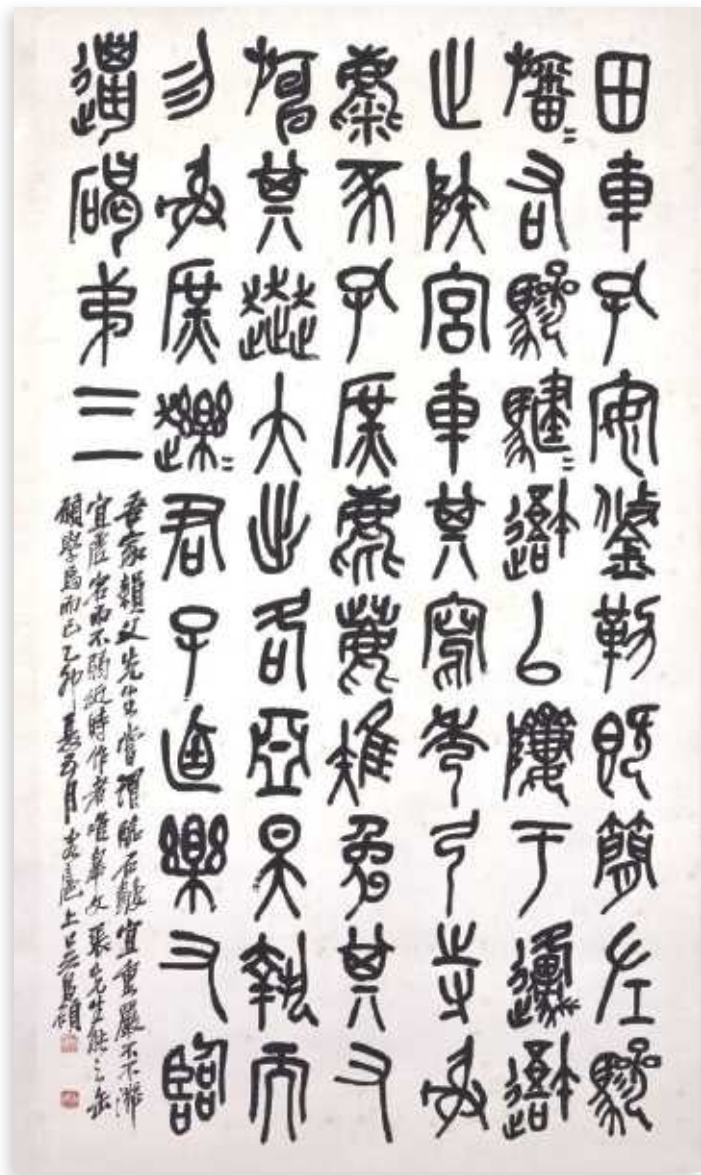 田車孔安鋚勒既簡左驂
旛=右驂騝=䢦以隮于邍䢦
止陜宮車其寫秀弓寺射
麋豕孔庶麀鹿雉兔其又
旃其大出各亞昊執而
勿射庶趯=君子逌樂又臨
邋碣弟三
吾家父先生嘗謂臨石鼓宜重嚴而不滯
宜虛宕而不弱近時作者唯皋文張先生能之缶
願學焉而已乙卯夏五月扈上吳昌碩